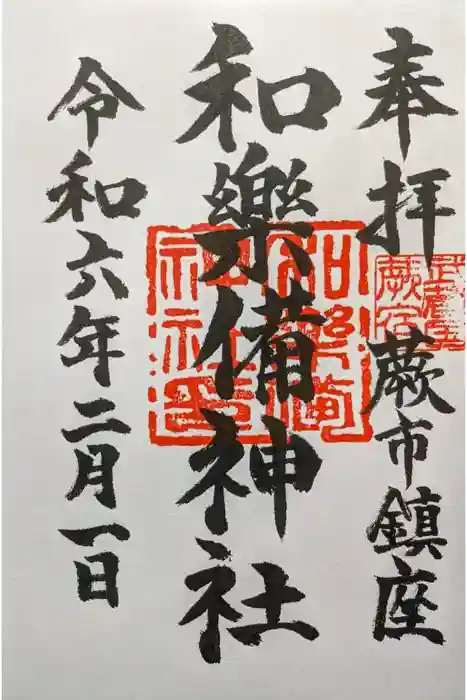 奉拝 蕨市鎮座
和樂備神社
令和六年二月一日
武蔵國
蕨宿
和樂備
神社